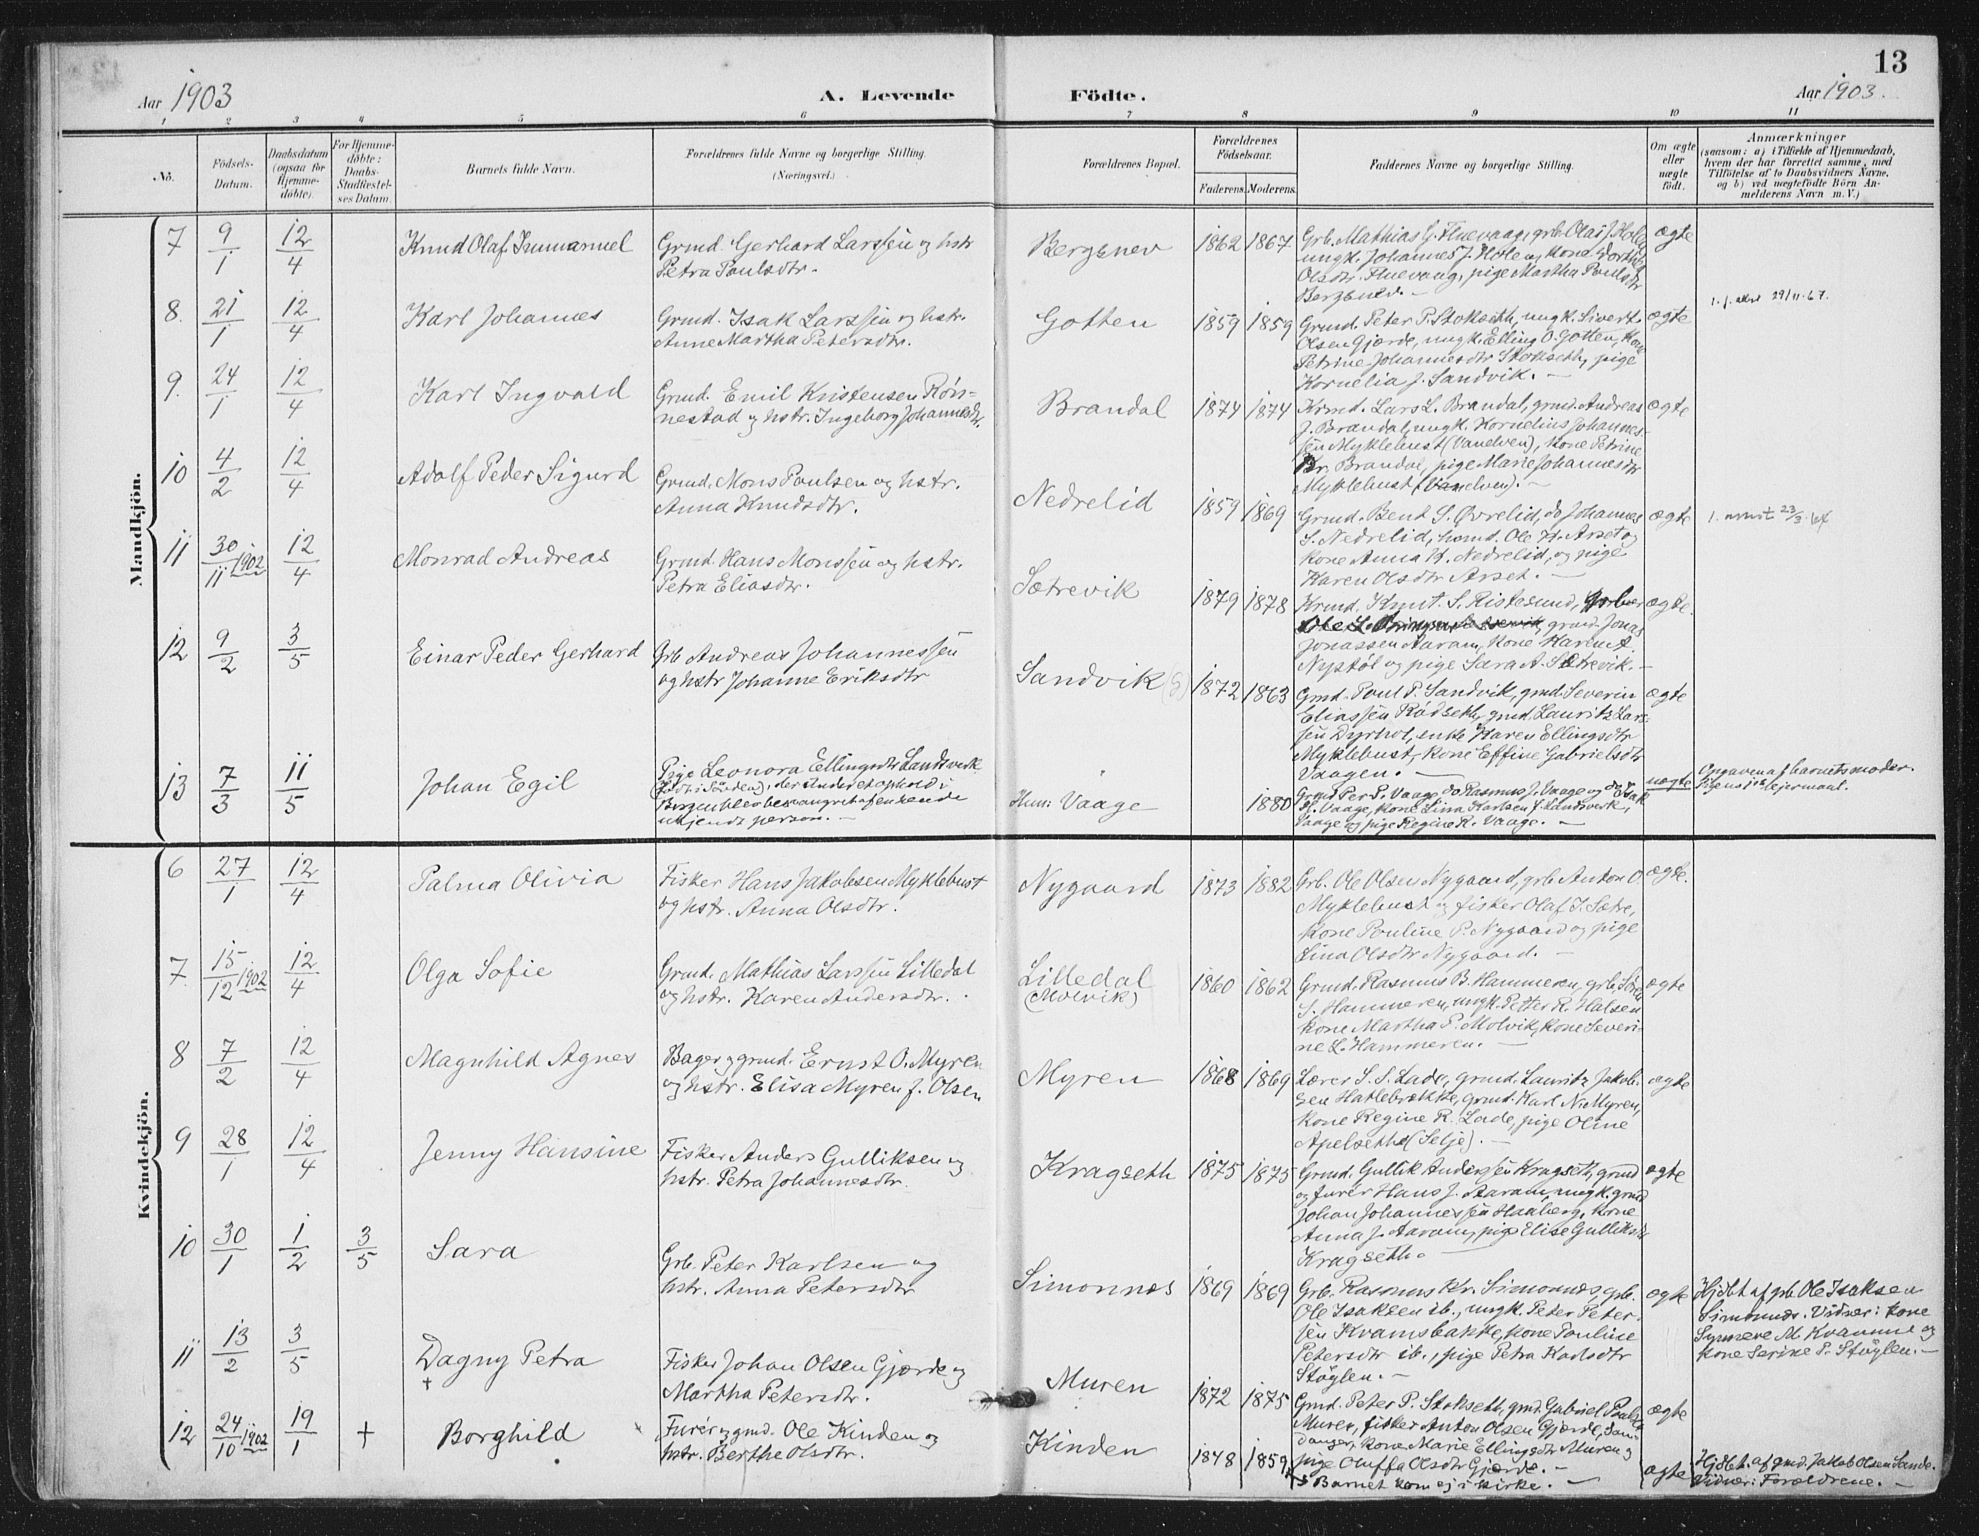 13
Aar 1903
A. Levende
Födte.
Aar 1903.
1 2 3 4 5 6 7 8 9 10 11
No.
Födsels-
Datum.
Daabsdatum
(ogsaa for
Hjemme-
döbte).
For Hjemme-
döbte:
Daabs-
Stadfæstel-
ses Datum.
Barnets fulde Navn.
Forældrenes fulde Navne og borgerlige Stilling.
(Næringsvei.)
Forældrenes Bopæl.
Forældrenes
Födselsaar.
Faderens. Moderens.
Faddernes Navne og borgerlige Stilling.
Om ægte
eller
uægte
födt.
Anmærkninger
(saasom: a) i Tilfælde af Hjemmedaab,
hvem der har forrettet samme, med
Tilföielse af to Daabsvidners Navne,
og b) ved uægtefödte Börn An-
melderens Navn m. V.)
Mandkjön.
7 9/1 12/4 Knud Olaf Immanuel
Grmd. Gerhard Larssen og hstr.
Petra Paulsdtr.
Bergsnev 1862 1867
Grb. Mathias G. Fluevaag, grb. Olai J. Hole,
ungk. Johannes J. Hole og kone Dorthe
Olsdtr. Fluevaag, pige Martha Poulsdtr
Bergsnev. -
ægte
8. 21/1 12/4 Karl Johannes
Grmd. Isak Larssen og hstr.
Anne Martha Petersdtr.
Gotten 1859 1859
Grmd. Peter P. Stokseth, ungk. Sivert
Olsen Gjærde, ungk. Elling O. Gotten, kone
Petrine Johannesdtr Stokseth, pige
Kornelia J. Sandvik. -
ægte
29/11-67.
9. 24/1 12/4 Karl Ingvald
Grmd. Emil Kristensen Røn-
nestad og hstr. Ingeborg Johannesdtr.
Brandal 1874 1874
Grmd. Lars L. Brandal, grmd. Andreas
J. Brandal, ungk. Kornelius Johannes-
sen Myklebust (Vanelven), kone Petrine
Kr. Brandal, pige Marie Johannesdtr
Myklebust (Vanelven). -
ægte
10 4/2 12/4 Adolf Peder Sigurd
Grmd. Mons Poulsen og hstr.
Anna Knudsdtr.
Nedrelid 1859 1869
Grmd. Bent S. Øvrelid, do Johannes
S. Nedrelid, Ole H. Arset og
kone Anna H. Nedrelid, og pige
Karen Olsdtr Arset. -
ægte
11 30/11 1902 12/4 Monrad Andreas
Grmd. Hans Monssen og hstr.
Petra Eliasdtr.
Sætrevik 1879 1878
Grmd. Knut S. Ristesund,
grmd. Jonas
Jonassen Aaram, kone Karen A.
Nystøl og pige Sara A. Sætrevik. -
ægte.
12 9/2 3/5 Einar Peder Gerhard
Grb Andreas Johannessen
og hstr Johanne Eriksdtr
Sandvik (S) 1872 1863
Grmd. Poul P. Sandvik, grmd. Severin
Eliassen Rødseth, grmd. Lauritz Lars-
sen Dyrhol, enke Karen Ellingsdtr
Myklebust, kone Effine Gabrielsdtr
Vaagen. -
ægte
13 7/3 11/5 Johan Egil
Pige Leonora Ellingsdtr Landsverk
(født i Sunden), der under et ophold i
Bergen blev besvangret af en hende
ukjendt person. -
Hum: Vaage 1880
Grmd Per P. Vaage, do Rasmus J. Vaage og do Isak
J. Vaage, kone Lina Karlsen f. Landsverk,
Vaage og pige Regine R. Vaage. -
uægte
Opgaven af barnets moder.
Pigens 1ste leiermaal.
Kvindekjön.
6 27/1 12/4 Palma Olivia
Fisker Hans Jakobsen Myklebust
og hstr. Anna Olsdtr.
Nygaard 1873 1882
Grb. Ole Olsen Nygaard, grb Anton O.
Myklebust og fisker Olaf I. Sætre,
kone Pouline P. Nygaard og pige
Lina Olsdtr Nygaard. -
ægte.
7. 15/12 1902 12/4 Olga Sofie
Grmd. Mathias Larssen Lilledal
og hstr. Karen Andersdtr.
Lilledal
(Molvik)
1860 1862
Grmd. Rasmus B. Hammeren, grb. Søren
S. Hammeren, ungk. Petter R. Halsen
kone Martha P. Molvik, kone Severi-
ne L. Hammeren. -
ægte
8 7/2 12/4 Magnhild Agnes
Bager og grmd. Ernst O. Myren
og hstr. Elisa Myren f. Olsen
Myren 1868 1869
Lærer S. S. Lade, grmd. Lauritz Jakob-
sen Hatlebrække, grmd. Karl N. Myren,
kone Regine R. Lade, pige Oline
Apelseth (Selje). -
ægte
9 28/1 12/4 Jenny Hansine
Fisker Anders Gulliksen og
hstr. Petra Johannesdtr.
Kragseth 1875 1875
Grmd. Gullik Anderssen Kragseth, grmd
og furér Hans J. Aaram, ungk. grmd
Johan Johannessen Haaberg, kone
Anna J. Aaram, pige Elise Gulliksdtr
Kragseth.
ægte
10 30/1 1/2 3/5 Sara
Grb. Peter Karlsen og
hstr. Anna Petersdtr
Simonnæs 1869 1869
Grb. Rasmus Kr. Simonnæs, grb.
Ole Isaksen ib., ungk. Peter Peter-
sen Kvamsbakke, kone Pouline
Petersdtr ib., pige Petra Karlsdtr
Støylen. -
ægte
Hjdbt. af grb. Ole Isaksen
Simonnæs. Vidner: kone
Synneve M. Kvamme og
kone Serine P. Støylen. -
11 13/2 3/5 Dagny Petra
+
Fisker Johan Olsen Gjærde og
Martha Petersdtr.
Muren 1872 1875
Grmd. Peter P. Stokseth, grmd. Gabriel Pauls.
Muren, fisker Anton Olsen Gjærde, San-
danger, kone Marie Ellingsdtr Muren og
pige Oluffa Olsdtr Gjærde. -
ægte
12 24/10 1902 19/1 + Borghild
Furér og grmd. Ole Kinden og
hstr. Berthe Olsdtr.
Kinden 1848 1859
Barnet kom ej i kirke. -
ægte
Hjdbt. af grmd. Jakob Olsen Sande.
Vidner: Forældrene. -